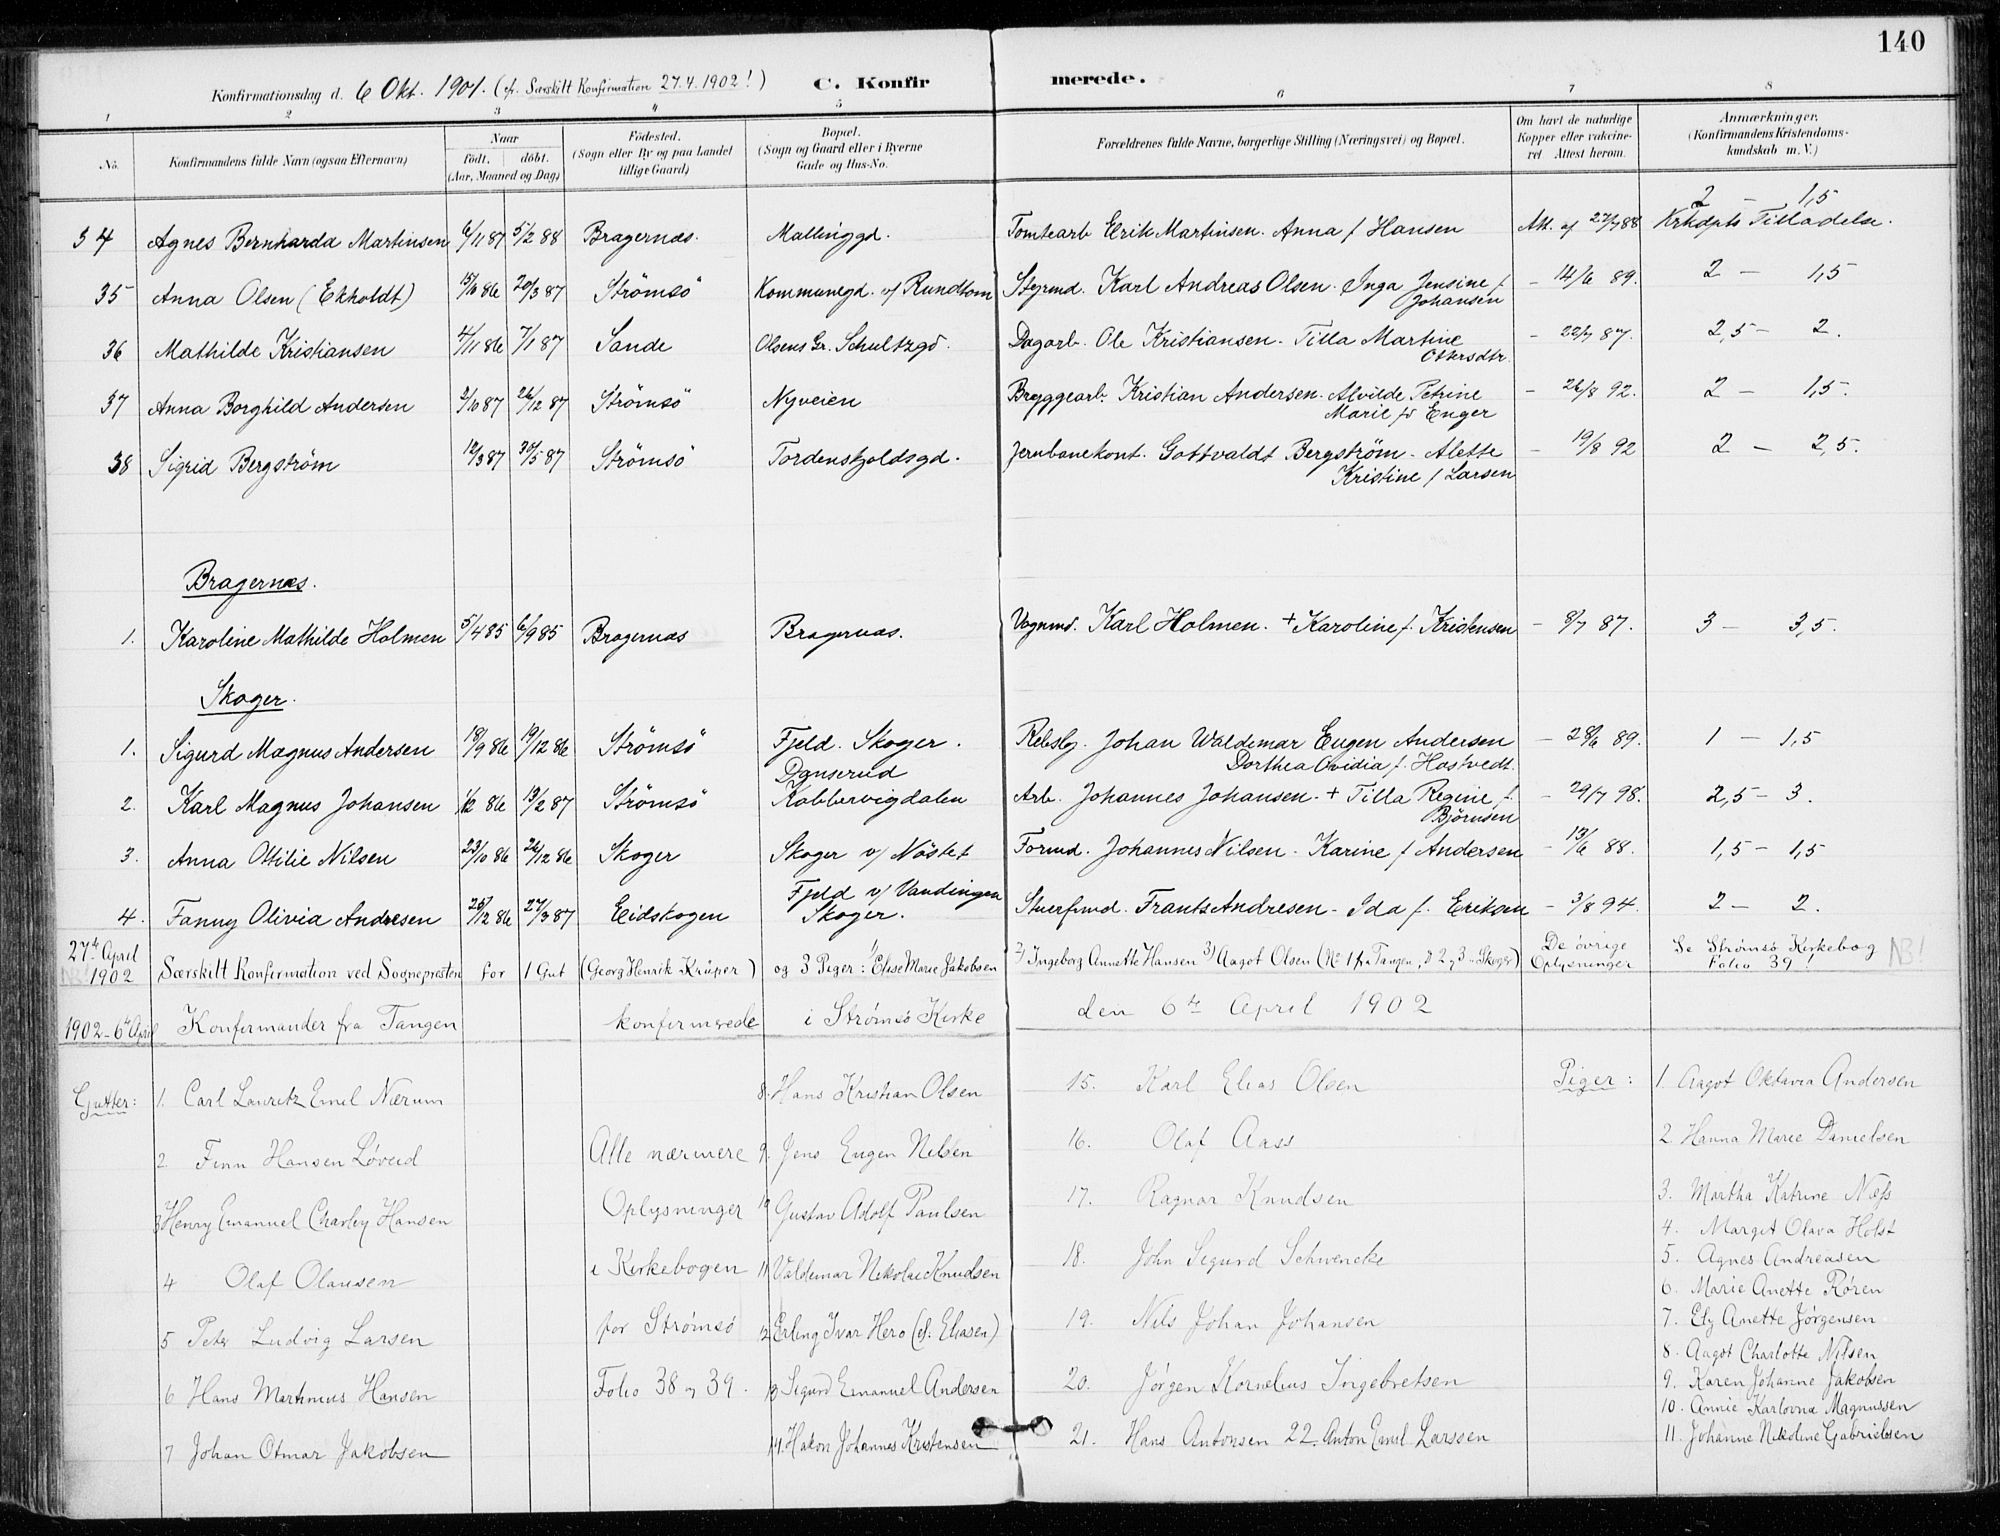 140
Konfirmationsdag d. 6 Okt. 1901. (cfr. Særskilt Konfirmation 27.4.1902!) C. Konfirmerede.
1 2 3 4 5 6 7 8
No. Konfirmandens fulde Navn (ogsaa Efternavn) Naar født, døbt. (Aar, Maaned og Dag) Fødested. (Sogn eller By og paa Landet tillige Gaard) Bopæl. (Sogn og Gaard eller i Byerne Gade og Hus-No. Forældrenes fulde Navne, borgerlige Stilling (Næringsvei) og Bopæl. Om havt de naturlige Kopper eller vakcineret Attest herom. Anmærkninger. (Konfirmandens Kristendomskundskab m. V.)
34 Agnes Bernharda Martinsen 6/11 87 5/2 88 Bragernæs. Mallinggd. Tomtearb Erik Martinsen. Anna f Hansen Att. af 27/7 88 2 – 1,5 Krhdpts Tilladelse.
35 Anna Olsen (Ekholdt) 15/10 86 20/3 87 Strömsö Kommunegd. v/ Rundtom Styrmd. Karl Andreas Olsen. Inga Jensine f. Johansen – 14/6 89. 2 – 1,5
36 Mathilde Kristiansen 4/11 86 7/1 87 Sande Olsens Gr. Schultzgd. Dagarb. Ole Kristiansen. Tilla Martine Ottersdtr. – 22/7 87. 2,5 – 2.
37 Anna Borghild Andersen 2/10 87 26/12 87 Strömsö Nyveien Bryggearb. Kristian Andersen. Alvilde Petrine Marie f. Enger – 26/8 92. 2 – 1,5.
38 Sigrid Bergström 12/3 87 30/5 87 Strömsö Tordenskjoldsgd. Jernbanekont. Gottvaldt Bergström – Alette Kristine f Larsen – 19/8 92 2 – 2,5.
Bragernæs.
1. Karoline Mathilde Holmen 5/4 85 6/9 85 Bragernæs Bragernæs. Vognmd. Karl Holmen. + Karoline f. Kristensen – 8/7 87. 3 – 3,5.
Skoger.
1. Sigurd Magnus Andersen 18/9 86 19/12 86 Strömsö Fjeld. Skoger. Rebslg. Johan Waldemar Eugen Andersen Dorthea Ovidia f. Hostvedt. – 28/6 89. 1 – 1,5
2. Karl Magnus Johansen 1/12 86 13/2 87 Strömsö Danserud Kobbervigdalen Arb. Johannes Johansen. + Tilla Regine f. Björnsen – 29/7 98. 2,5 – 3.
3. Anna Ottilie Nilsen 23/10 86 26/12 86 Skoger Skoger v/ Nöstet Formd. Johannes Nilsen. Karine f Andersen – 13/6 88. 1,5 – 1,5
4. Fanny Olivia Andresen 25/12 86 27/3 87 Eidskogen Fjeld v/ Vandingen Skoger. Frantz Andresen – Ida f. Eriksen – 3/8 94. 2 – 2.
27de April 1902 Særskilt Konfirmation ved Sognepresten for 1 Gut (Georg Henrik Krüger) og 3 Piger: 1) Elise Marie Jakobsen 2) Ingeborg Annette Hansen 3) Aagot Olsen (No 1 fra Tangen, 2 og 3 Skoger) De övrige Oplysninger Se Strømsø Kirkebog Folio 39! NB!
1902 – 6te April Konfirmander fra Tangen konfirmerede i Strømsø Kirke den 6te April 1902
Gutter: 1. Carl Lauritz Emil Nærum 8. Hans Kristian Olsen 15. Karl Elias Olsen Piger: 1. Aagot Oktavia Andersen
2 Finn Hansen Løveid Alle nærmere 9. Jens Eugen Nilsen 16. Olaf Aass 2. Hanna Marie Danielsen
3 Henry Emanuel Charley Hansen Oplysninger 10 Gustav Adolf Paulsen 17. Ragnar Knudsen 3. Martha Katrine Næss
4. Margit Olava Holst
4 Olaf Olausen i Kirkebogen 11 Valdemar Nikolai Knudsen 18. John Sigurd Schwencke 5. Agnes Andreasen
6. Marie Anette Røren
5 Peter Ludvig Larsen for Strømsø 12 Erling Ivar Hero (cf. Eliasen) 19. Nils Johan Johansen 7. Ely Anette Jørgensen
8. Aagot Charlotte Nilsen
6 Hans Martinius Hansen Folio 38 og 39. 13 Sigurd Emanuel Andersen 20. Jørgen Kornelius Ingebretsen 9. Karen Johanne Jakobsen
10. Annie Karlovna Magnussen
7 Johan Otmar Jakobsen 14. Hakon Johannes Kristensen 21. Hans Antonsen 22. Anton Emil Larssen 11. Johanne Nikoline Gabrielsen